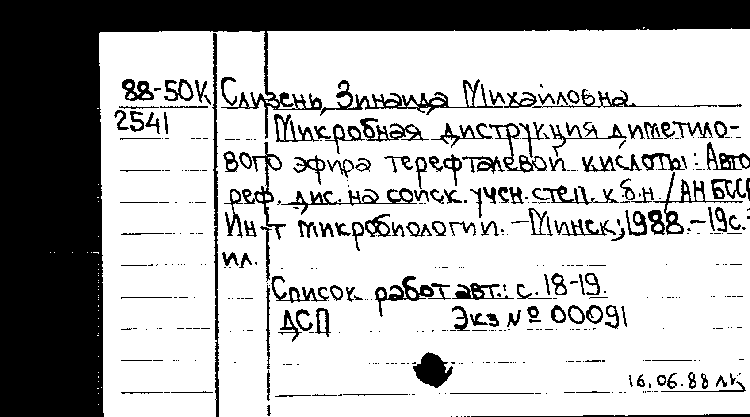 88-50К Слизень, Зинаида Михайловна.
2541 Микробная диструкция диметило-
вого эфира терефталевой кислоты: Авто
реф. дис. на соиск. учен. степ. к.б.н / АН БССР
Ин-т микробиологии. - Минск, 1988. - 19с.:
ил.
Список работ авт.: с. 18-19.
ДСП Экз № 00091
16.06.88 ЛК